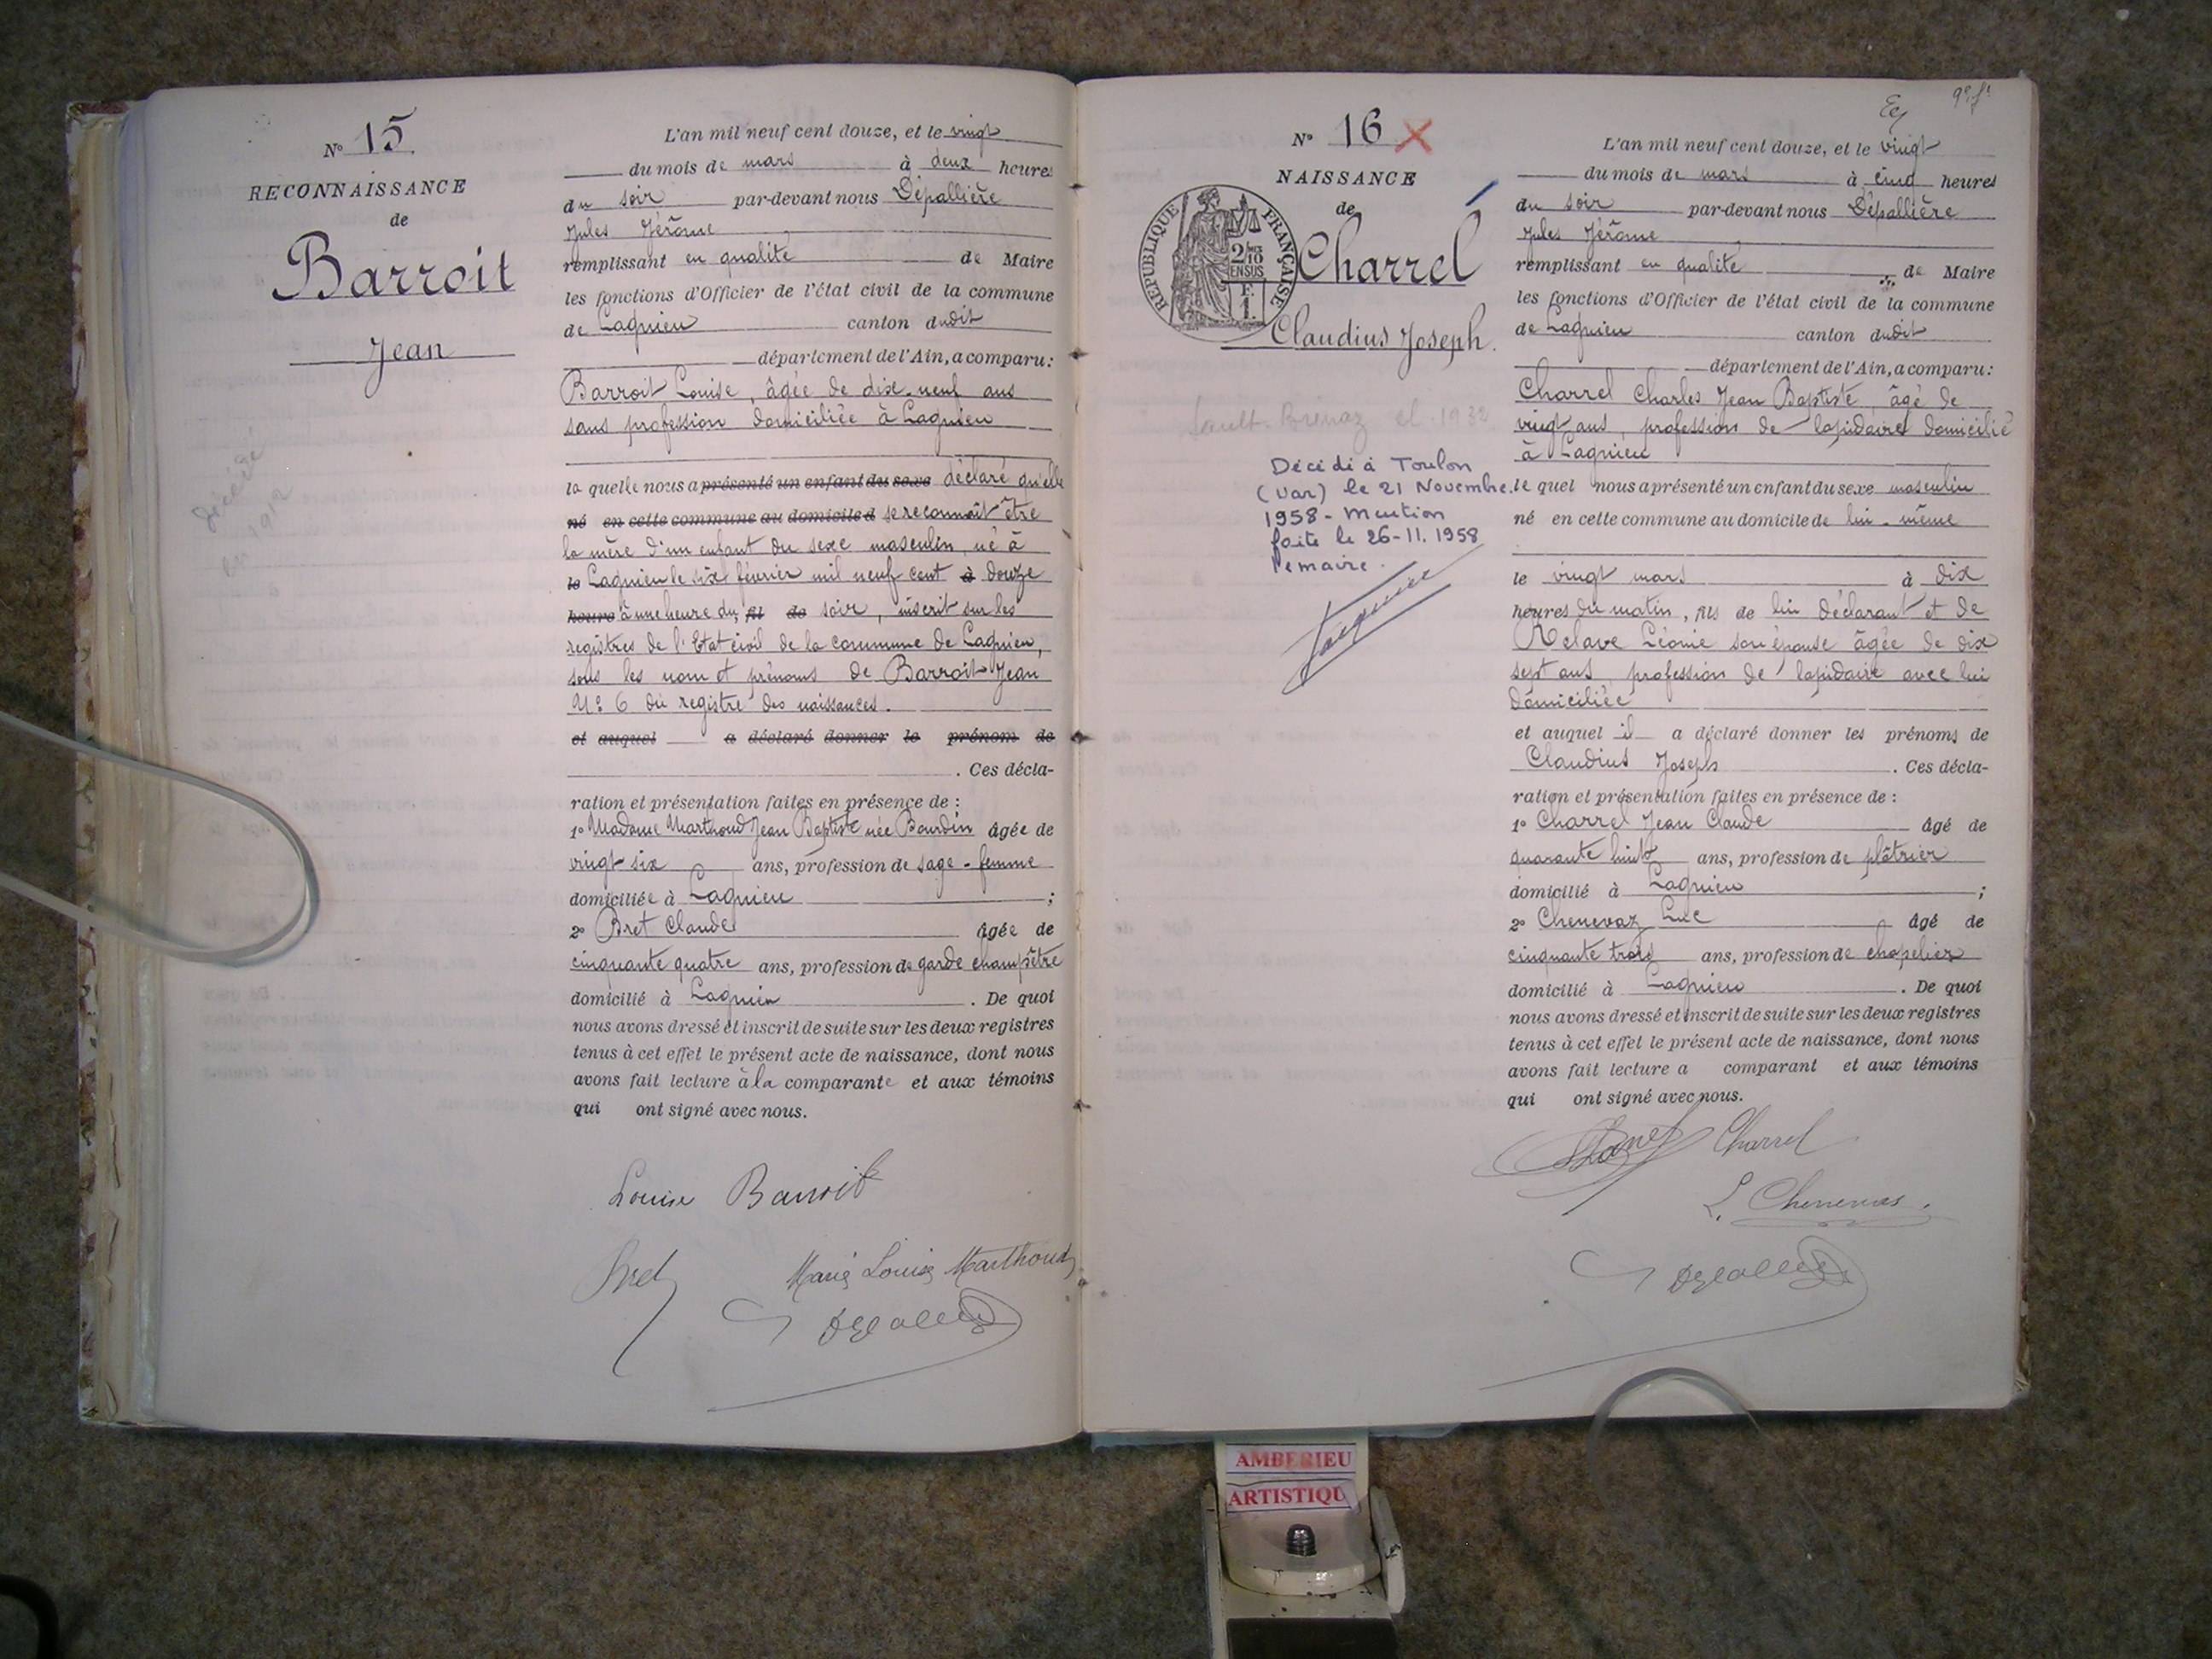 N° 15
RECONNAISSANCE
de
Barroit
Jean
décédé
en 1912
L'an mil neuf cent douze, et le vingt
du mois de mars à deux heures
du soir par-devant nous Dépallière
Jules Jérôme
remplissant en qualité de Maire
les fonctions d'Officier de l'état civil de la commune
de Lagnieu canton dudit
département de l'Ain, a comparu :
Barroit Louise, âgée de dix-neuf ans
sans profession domiciliée à Lagnieu
la quelle nous a présenté un enfant du sexe déclaré qu'elle
né en cette commune au domicile d se reconnaît être
la mère d'un enfant du sexe masculin, né à
le Lagnieu le six février mil neuf cent à douze
heure à une heure du, fil de soir, inscrit sur les
registres de l'Etat civil de la commune de Lagnieu,
sous les nom et prénoms de Barroit Jean
N° 6 du registre des naissances.
et auquel a déclaré donner le prénom de
. Ces décla-
ration et présentation faites en présence de :
1° Madame Marthoud Jean Baptiste née Bourdin âgée de
vingt six ans, profession de sage-femme
domiciliée à Lagnieu ;
2° Bret Claude âgée de
cinquante quatre ans, profession de garde champêtre
domicilié à Lagnieu . De quoi
nous avons dressé et inscrit de suite sur les deux registres
tenus à cet effet le présent acte de naissance, dont nous
avons fait lecture à la comparante et aux témoins
qui ont signé avec nous.
Louise Barroit
Bret Marie Louise Marthoud
N° 16
NAISSANCE
de
RÉPUBLIQUE FRANÇAISE
2/10 EN SUS
F.
1.
Charrel
Claudius Joseph.
Sault-Brenaz el. 1932
Décédé à Toulon
(Var) le 21 Novembre
1958 - Mention
faite le 26-11.1958
le maire.
L'an mil neuf cent douze, et le vingt
du mois de mars à cinq heures
du soir par-devant nous Dépallière
Jules Jérôme
remplissant en qualité de Maire
les fonctions d'Officier de l'état civil de la commune
de Lagnieu canton dudit
département de l'Ain, a comparu :
Charrel Charles Jean Baptiste âgé de
vingt ans, profession de lapidaire domicilié
à Lagnieu
le quel nous a présenté un enfant du sexe masculin
né en cette commune au domicile de lui-même
le vingt mars à dix
heures du matin, fils de lui déclarant et de
Léonie son épouse âgée de dix
sept ans, profession de lapidaire avec lui
domiciliée
et auquel il a déclaré donner les prénoms de
Claudius Joseph . Ces décla-
ration et présentation faites en présence de :
1° Charrel Jean Claude âgé de
quarante huit ans, profession de plâtrier
domicilié à Lagnieu ;
2° Chenevaz Luc âgé de
cinquante trois ans, profession de chapelier
domicilié à Lagnieu . De quoi
nous avons dressé et inscrit de suite sur les deux registres
tenus à cet effet le présent acte de naissance, dont nous
avons fait lecture a comparant et aux témoins
qui ont signé avec nous.
Charrel
L. Chenevas.
AMBERIEU
ARTISTIQU